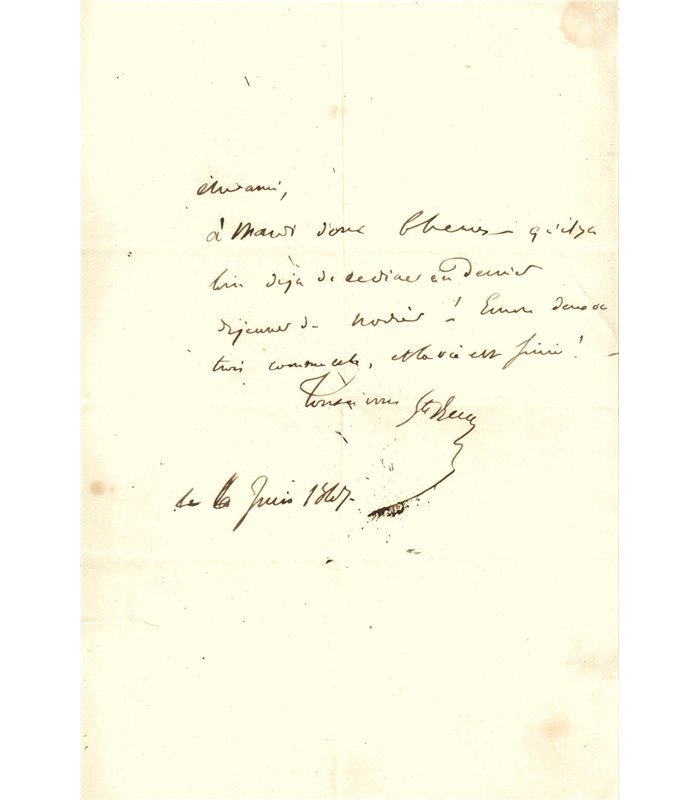 cher ami,
à Mardi donc 6 heures – qu'il y a
loin déjà de ce diner au Dernier
déjeuner de Nodier ! Encore deux ou
trois comme cela, et la vie est finie ! –
Tout à vous Ste Beuve
ce 6 Juin